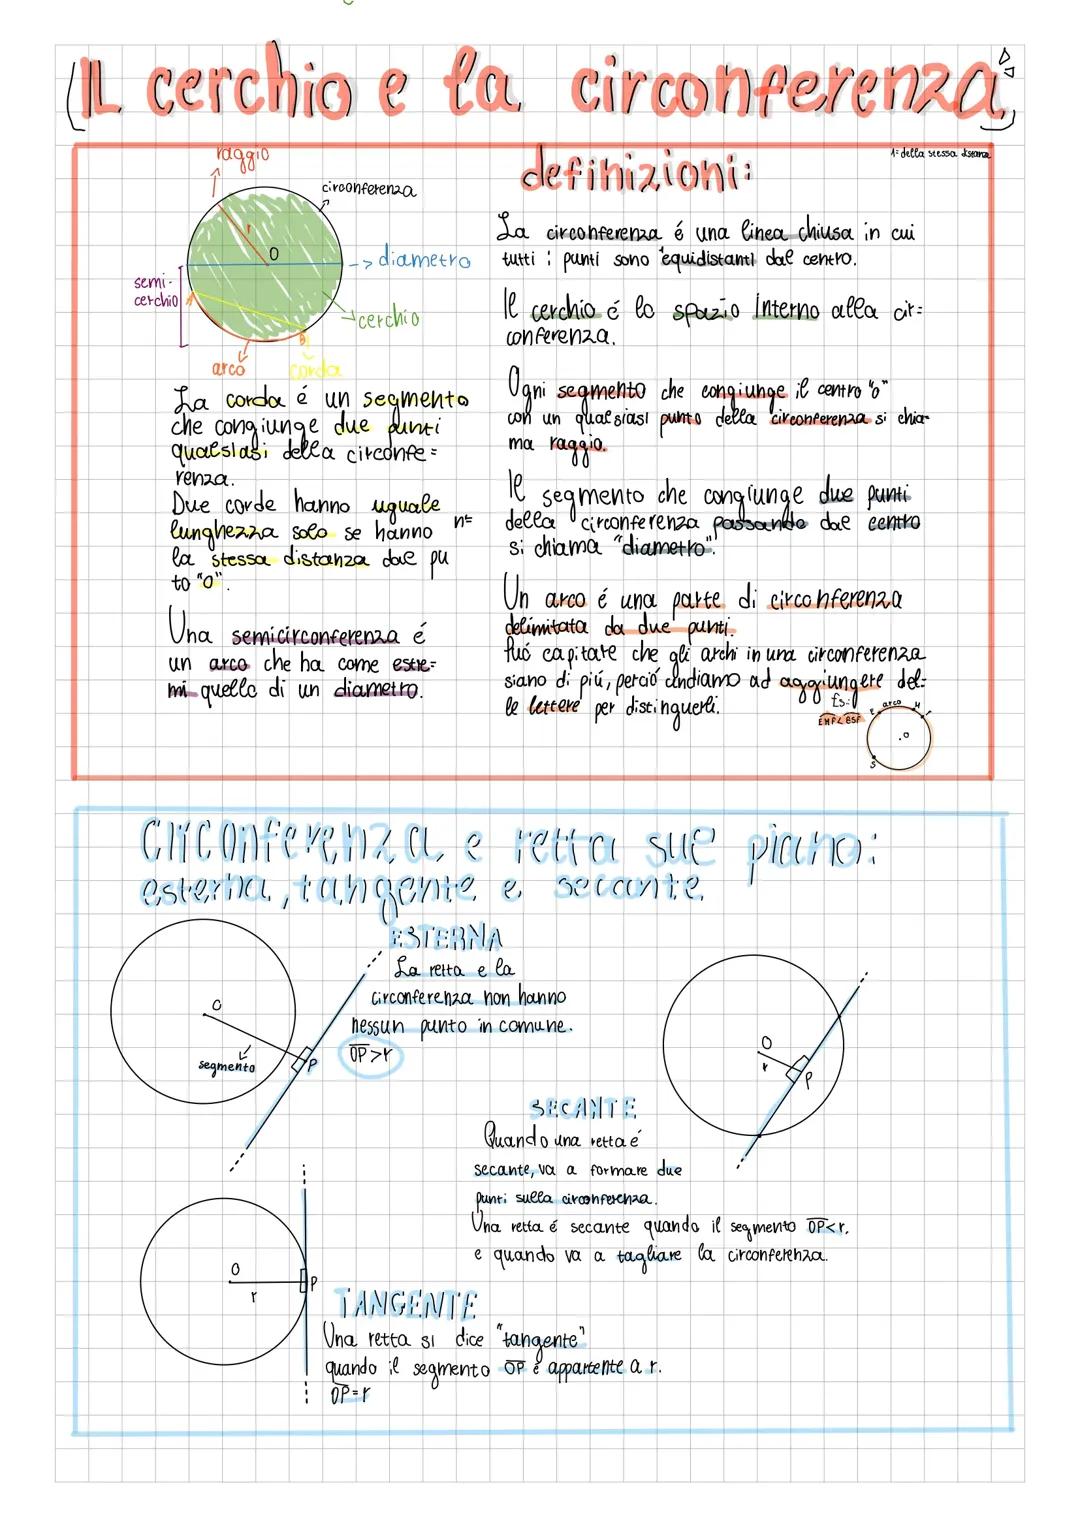 IL cerchio e la circonferenza
raggio
circonferenza
r
O
diametro
semi-
cerchio
cerchio
A
B
arco
corda
La corda é un segmento
che congiunge due punti
qualsiasi della circonfe=
renza.
Due corde hanno uguale
lunghezza solo se hanno
la stessa distanza dal pu n=
to "O".
Una semicirconferenza é
un arco che ha come estre=
mi quello di un diametro.
1= della stessa distanza
definizioni:
La circonferenza é una linea chiusa in cui
tutti i punti sono ¹equidistanti dal centro.
Il cerchio é lo spazio interno alla cir=
conferenza.
Ogni segmento che congiunge il centro "o"
con un qualsiasi punto della circonferenza si chia-
ma raggio.
Il segmento che congiunge due punti
della circonferenza passando dal centro
si chiama "diametro".
Un arco é una parte di circonferenza
delimitata da due punti.
Puó capitare che gli archi in una circonferenza
siano di piú, perció andiamo ad aggiungere del=
le lettere per distinguerli.
Es:
EMF< ESF
E arco M F
.O
S
Circonferenza e retta sul piano:
esterna, tangente e secante
ESTERNA
La retta e la
circonferenza non hanno
nessun punto in comune.
OP>r
O
segmento
P
O
r
P
SECANTE
Quando una retta é
secante, va a formare due
punti sulla circonferenza.
Una retta é secante quando il segmento OP<r.
e quando va a tagliare la circonferenza.
O
r
P
TANGENTE
Una retta si dice "tangente"
quando il segmento OP é appartente a r.
OP=r